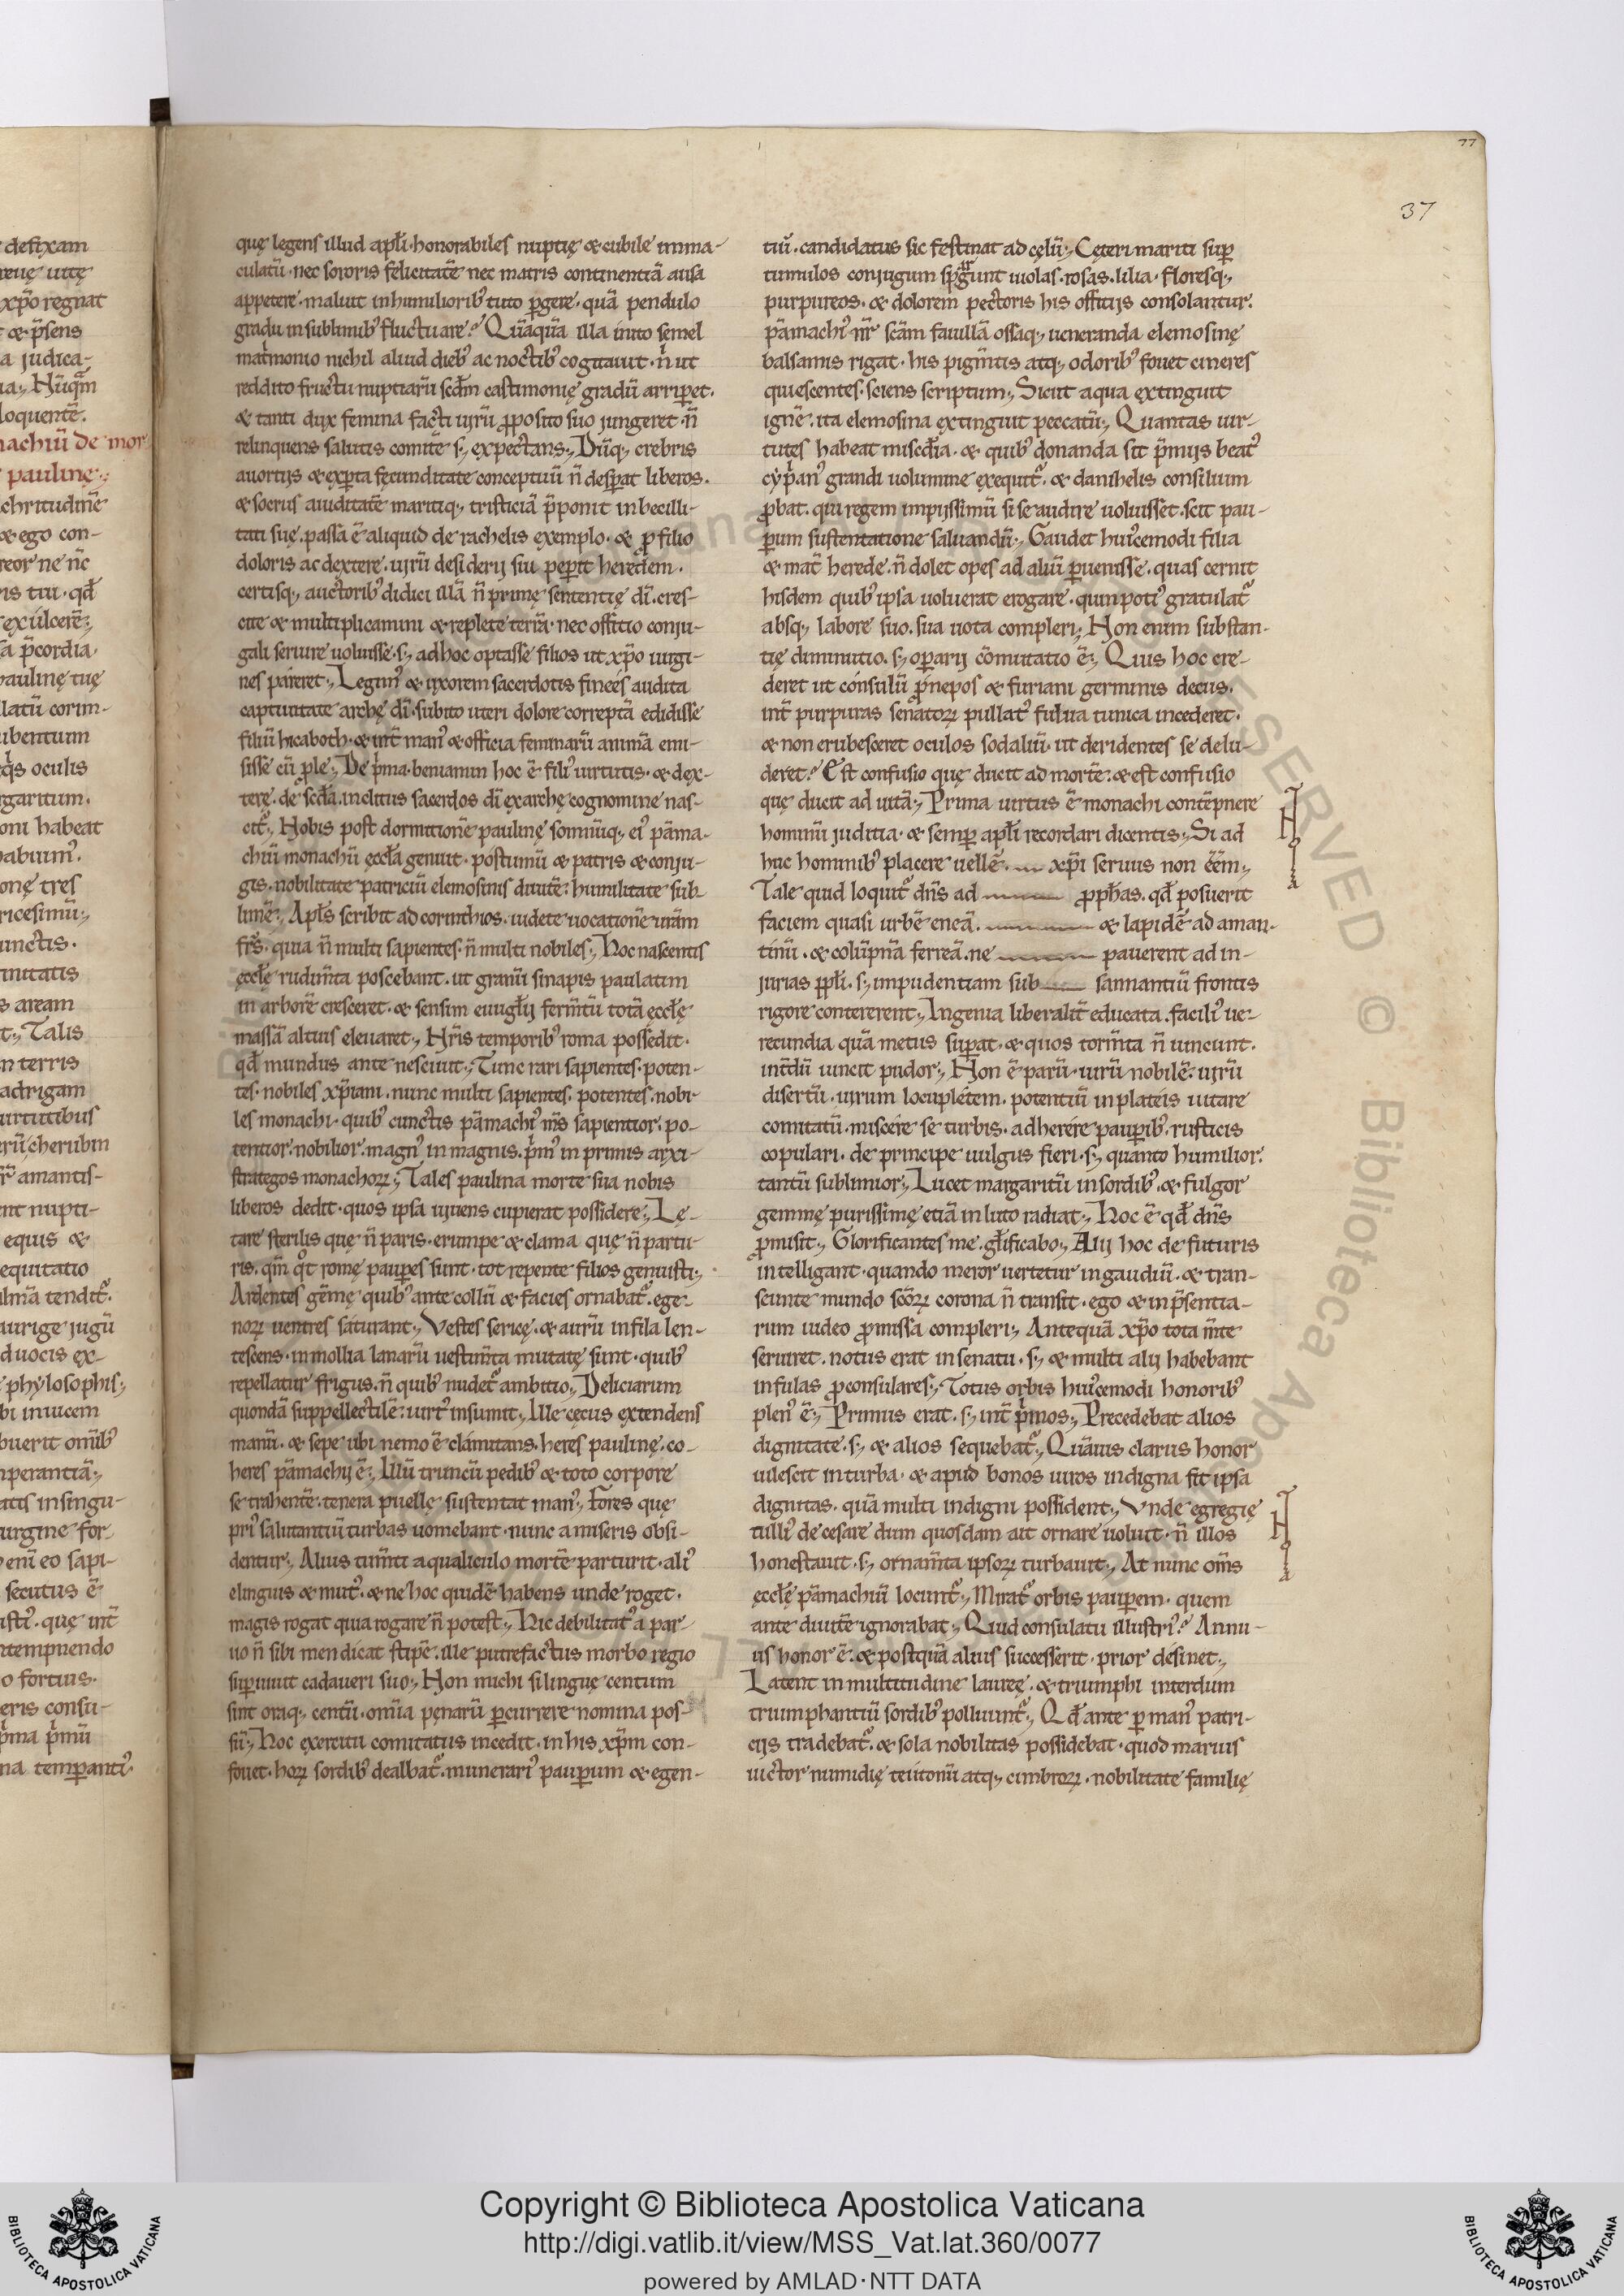 77
37
quę legens illud apłi·honorabiles nuptię & cubile imma-
culatū·nec sororis felicitatē nec matris continentiā ausa
appetere·maluit inhumiliorib' tuto ꝑgere·quā pendulo
gradu insublimib' fluctuare? Quāquā illa inito semel
mat̄monio nichil aliud dieb' ac noctib' cogitauit·n̄ ut
reddito fructu nuptiarū scd̄m castimonię gradū arriꝑet.
& tanti dux femina facti uirū ꝓposito suo jungeret·n̄
relinquens salutis comitē s; expectans; Dūq; crebris
auortijs & exꝑta fęcunditate conceptuū n̄ desꝑat liberos.
& socrus auiditatē maritiq; tristiciā p̄ponit inbecilli-
tati suę·passa ē aliquid de rachelis exemplo·& ꝓ filio
doloris ac dextere·uirū desiderij sui peꝑit heredem.
certisq; auctorib' didici illā n̄ primę sententię dī·cres-
cite & multiplicamini & replete terrā·nec offitio conju-
gali seruire uoluisse·s; adhoc optasse filios ut xp̄o uirgi-
nes páreret; Legim' & uxorem sacerdotis finees audita
captiuitate archę dī·subito uteri dolore correptā edidisse
filiū hicaboth·& int̄ man' & officia feminarū animā emi-
sisse cū ple; De p̄ma·beniamin hoc ē fili' uirtutis·& dex-
terę·de scd̄a·inclitus sacerdos dī exarche cognomine nas-
cit̄; Nobis post dormitionē paulinę somniūq; ei' pāma-
chiū monachū ęccła genuit·postumū & patris & conju-
gis·nobilitate patriciū elemosinis diuitē: humilitate sub-
limē; Apłs scribit ad corinthios·uidete uocationē urām
frs̄·quia n̄ multi sapientes·n̄ multi nobiles; Hoc nascentis
ęccłę rudim̄ta poscebant·ut granū sinapis paulatim
in arborē cresceret·& sensim euuglij ferm̄tū totā ęccłę
massā altius eleuaret; Nr̄is temporib' roma possedit.
qd̄ mundus ante nesciuit; Tunc rari sapientes·poten-
tes·nobiles xp̄iani·nunc multi sapientes·potentes·nobi-
les monachi·quib' cunctis pāmachi' m̄s sapientior·po-
tentior·nobilior·magn' in magnis·pm' in primis arxi-
strategos monachoꝝ; Tales paulina morte sua nobis
liberos dedit·quos ipsa uiuens cupierat possidere; Lę-
tare sterilis quę n̄ paris·erumpe & clama quę n̄ partu-
ris·qm̄ qt rome pauꝑes sunt·tot repente filios genuisti;
Ardentes gēmę quib' ante collū & facies ornabat̄·ege-
noꝝ uentres saturant; Vestes sericę·& aurū infila len-
tescens·in mollia lanarū uestim̄ta mutatę sunt·quib'
repellatur frigus·n̄ quib' nudet̄ ambitio; Deliciarum
quondā suppellectilē: uirt' insumit; Ille cęcus extendens
manū·& sepe ubi nemo ē clámitans·heres paulinę·co-
heres pāmachij ē; Illū truncū pedib' & toto corpore
se trahentē·tenera puellę sustentat man'; Fores quę
pri' salutantiū turbas uomebant·nunc a miseris obsi-
dentur; Alius tum̄ti aqualiculo mortē parturit·ali'
elinguis & mut'·& ne hoc quidē habens unde roget.
magis rogat quia rogare n̄ potest; Hic debilitat' a par-
uo n̄ sibi mendicat stipē·ille putrefactus morbo regio
suꝑuiuit cadaueri suo; Non michi si linguę centum
sint oraq; centū·om̄ia pęnarū ꝑcurrere nomina pos-
sū; Hoc exercitu comitatus incedit·in his xp̄m con-
fouet·hoꝝ sordib' dealbat̄·munerari' pauꝑum & egen-
tiū·candidatus sic festinat ad cęlū; Cęteri mariti suꝑ
tumulos conjugum spargunt uiolas·rosas·lilia·floresq;
purpureos·& dolorem pectoris his offitijs consolantur.
pāmachi' nr̄ scām fauillā ossaq; ueneranda elemosinę
balsamis rigat·his pigm̄tis atq; odorib' fouet cineres
quiescentes·sciens scriptum; Sicut aqua extinguit
ignē·ita elemosina extinguit peccatū; Quantas uir-
tutes habeat miscd̄ia·& quib' donanda sit p̄mijs beat'
cyp̄an' grandi uolumine exequit̄·& danihelis consilium
ꝓbat·qui regem impijssimū si se audire uoluisset·scit pau-
ꝑum sustentatione saluandū; Gaudet hui'cemodi filia
& mat̄ herede·n̄ dolet opes ad aliū ꝑuenisse·quas cernit
hisdem quib' ipsa uoluerat erogare·quin poti' gratulat̄
absq; labore suo·sua uota compleri; Non enim substan-
tię diminutio·s; oꝑarij cōmutatio ē; Quis hoc cre-
deret ut cónsulū ꝓnepos & furiani germinis decus.
int̄ purpuras senatoꝝ pullat' fulua tunica incederet.
& non erubesceret oculos sodaliū·ut deridentes se delu-
deret? Est confusio quę ducit ad mortē·& est confusio
quę ducit ad uitā; Prima uirtus ē monachi contēpnere
hominū juditia·& semꝑ apłi recordari dicentis; Si ad
huc hominib' placere uellē· xp̄i seruus non eēm;
Tale quid loquit̄ dn̄s ad ꝓphas·qd̄ posuerit
faciem quasi urbē eneā· & lapidē adaman-
tinū·& colūpnā ferreā·ne pauerent ad in-
jurias ppłi·s; impudentiam sub sannantiū frontis
rigore contererent; Ingenia liberalit̄ educata·facili' ue-
recundia quā metus suꝑat·& quos torm̄ta n̄ uincunt.
int̄dū uincit pudor; Non ē parū·uirū nobilē·uirū
disertū·uirum locuplétem·potentiū in platéis uitare
comitatū·miscére se turbis·adherére pauꝑib'·rusticis
copulari·de principe uulgus fieri·s; quanto humilior.
tantū sublimior; Lucet margaritū in sordib'·& fulgor
gemmę purissimę etiā in luto radiat; Hoc ē qd̄ dn̄s
ꝓmisit; Glorificantes me·głificabo; Alij hoc de futuris
intelligant·quando meror uertetur in gaudiū·& tran-
seunte mundo scōꝝ corona n̄ transit·ego & in p̄sentia-
rum uideo ꝓmissa compleri; Antequā xp̄o tota m̄te
seruiret·notus erat in senatu·s; & multi alij habebant
infulas ꝓconsulares; Totus orbis hui'cemodi honorib'
plen' ē; Primus erat·s; int̄ p̄mos; Precedebat alios
dignitate·s; & alios sequebat̄; Quāuis clarus honor
uilescit in turba·& apud bonos uiros indigna fit ipsa
dignitas·quā multi indigni possident; Vnde egregię
tulli' de cesare dum quosdam ait ornare uoluit·n̄ illos
honestauit·s; ornam̄ta ipsoꝝ turbauit; At nunc om̄s
ęccłę pāmachiū locunt̄; Mirat̄ orbis pauꝑem·quem
ante diuitē ignorabat; Quid consulatu illustri'? Annu-
us honor ē·& postquā alius successerit·prior désinet;
Latent in multitudine laureę·& triumphi interdum
triumphantiū sordib' polluunt̄; Qd̄ ante ꝑ man' patri-
cijs tradebat̄·& sola nobilitas possidebat·quod marius
uictor numidię teútonū atq; cimbroꝝ·nobilitate familię
Copyright © Biblioteca Apostolica Vaticana
http://digi.vatlib.it/view/MSS_Vat.lat.360/0077
powered by AMLAD·NTT DATA
BIBLIOTECA APOSTOLICA VATICANA
BIBLIOTECA APOSTOLICA VATICANA